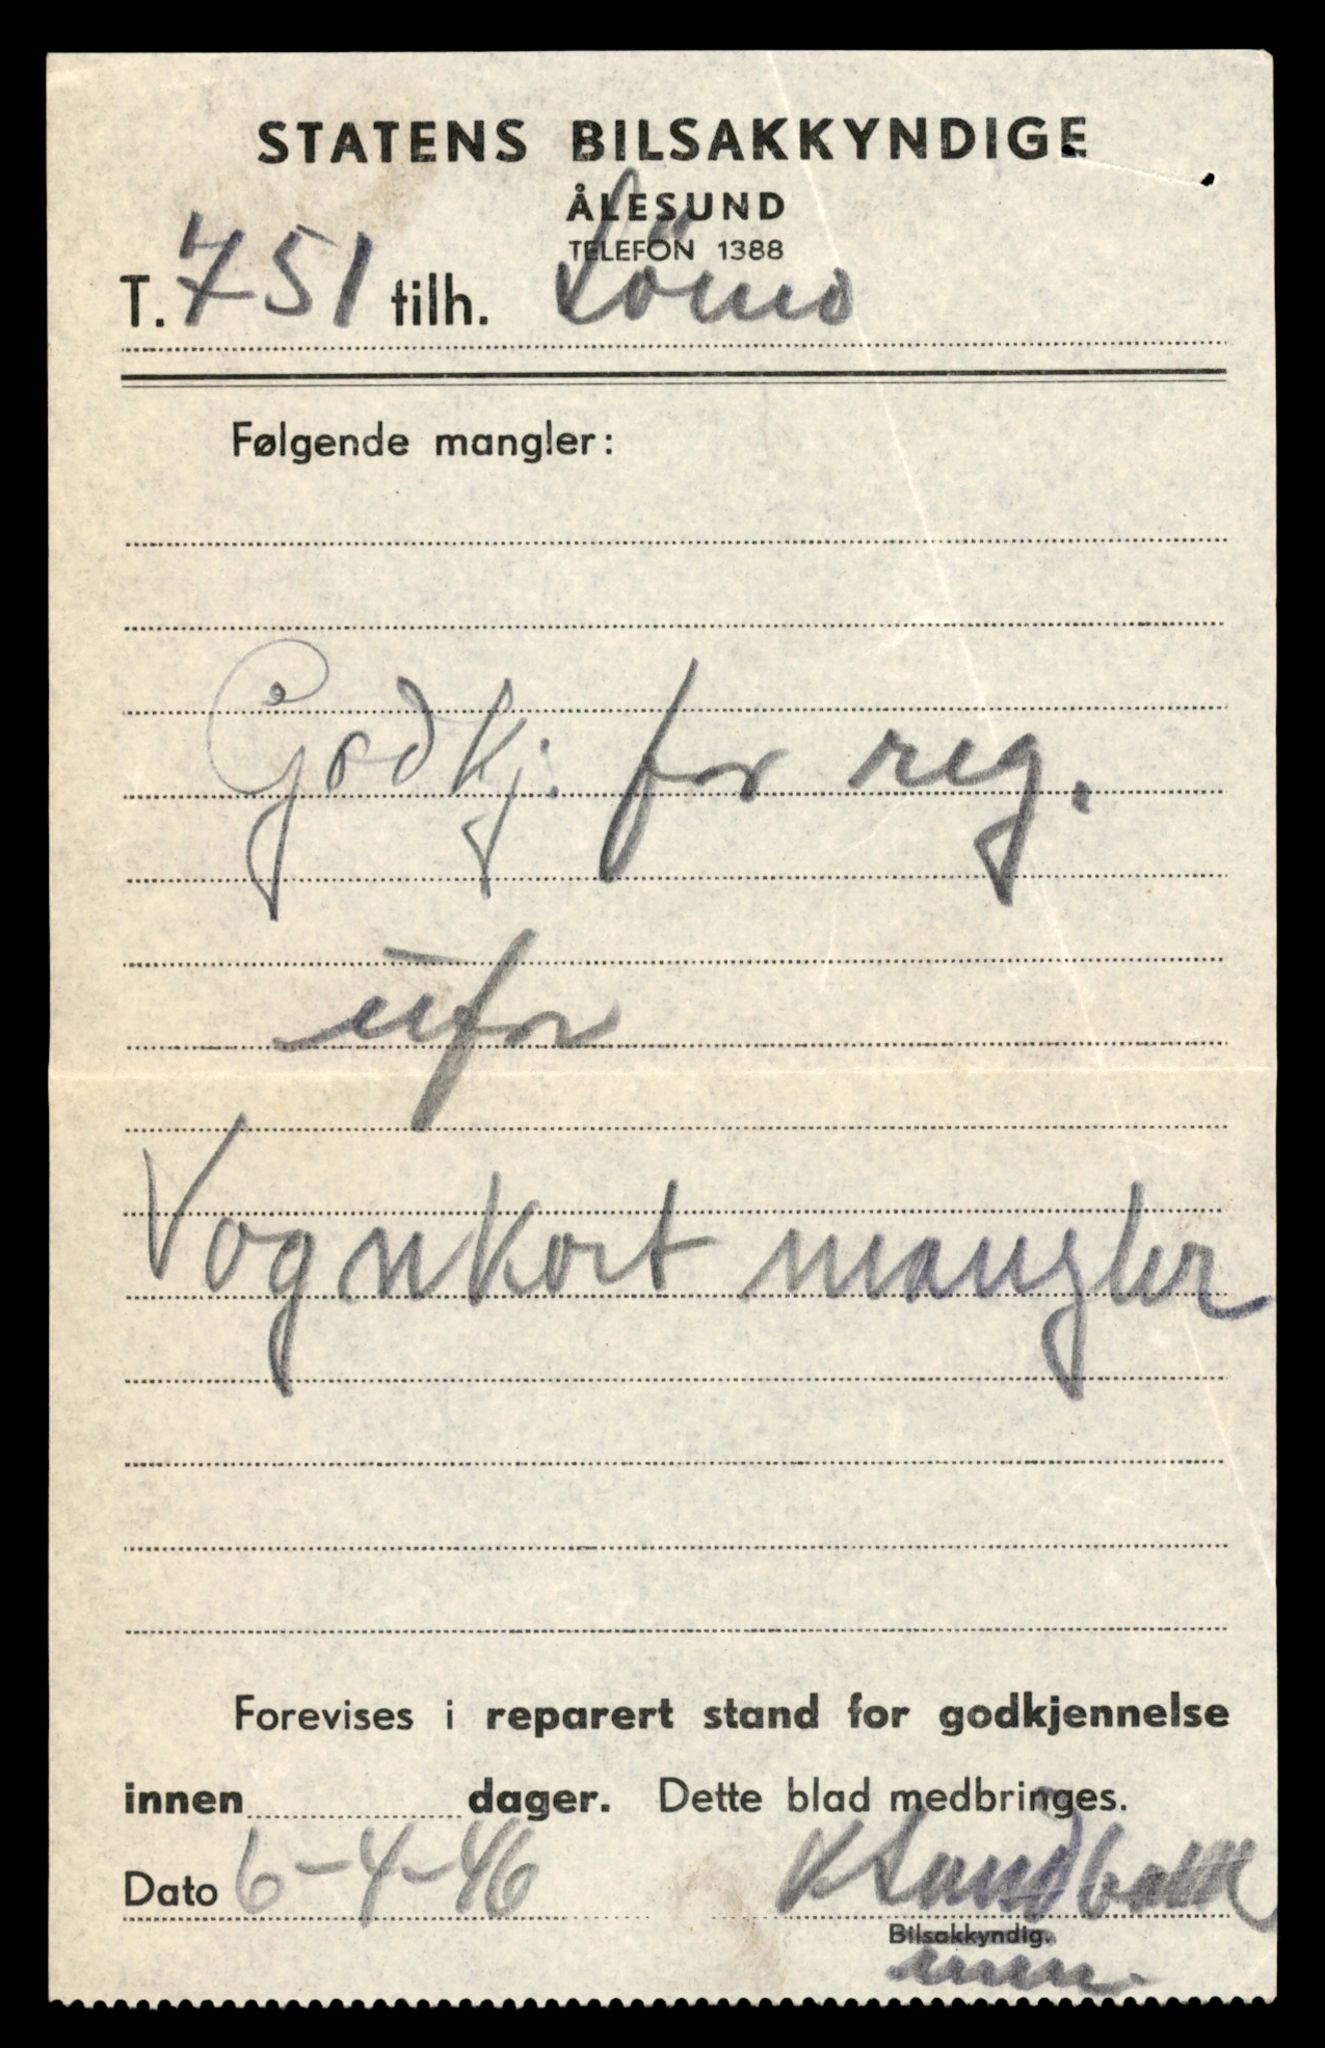 STATENS BILSAKKYNDIGE
ÅLESUND
TELEFON 1388
T. 751 tilh. Lömo
Følgende mangler:
Godkj. for reg.
Vognkort mangler
Forevises i reparert stand for godkjennelse
innen dager. Dette blad medbringes.
Dato 6-4-46
Bilsakkyndig.